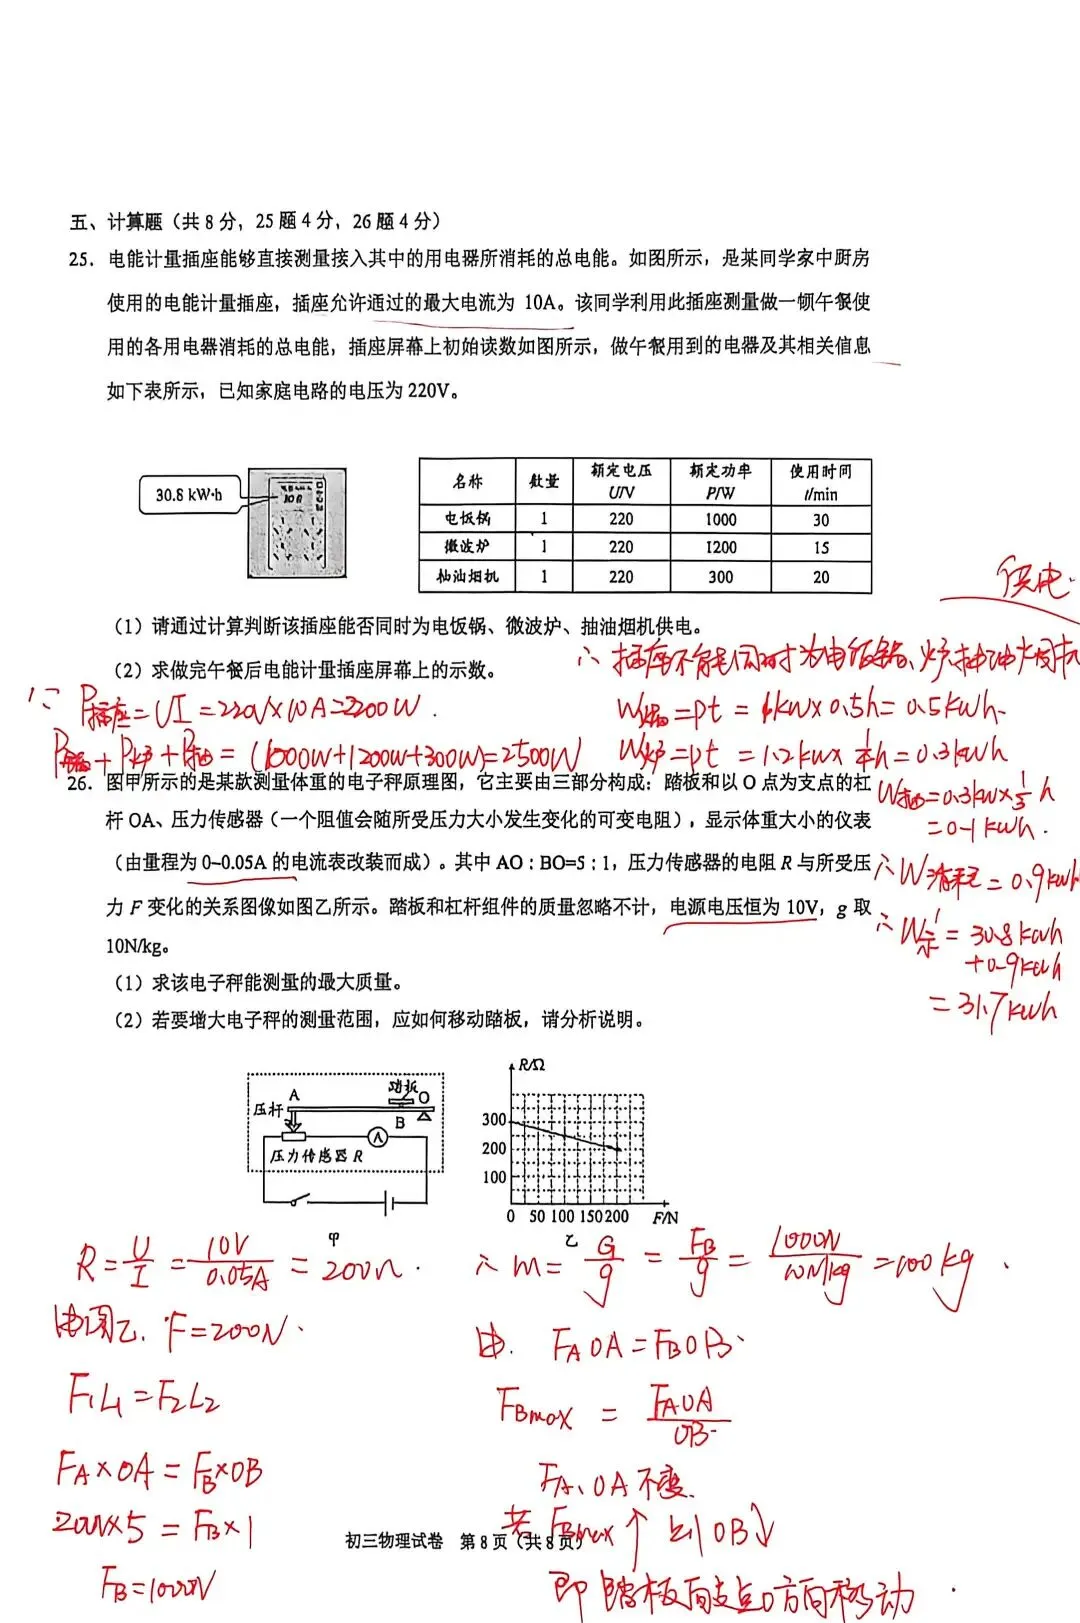 五、计算题（共8分，25题4分，26题4分）
25．电能计量插座能够直接测量接入其中的用电器所消耗的总电能。如图所示，是某同学家中厨房
使用的电能计量插座，插座允许通过的最大电流为 10A。该同学利用此插座测量做一顿午餐使
用的各用电器消耗的总电能，插座屏幕上初始读数如图所示，做午餐用到的电器及其相关信息
如下表所示，已知家庭电路的电压为 220V。
30.8 kW·h
名称 数量 额定电压 U/V 额定功率 P/W 使用时间 t/min
电饭锅 1 220 1000 30
微波炉 1 220 1200 15
抽油烟机 1 220 300 20
供电.
（1）请通过计算判断该插座能否同时为电饭锅、微波炉、抽油烟机供电。
（2）求做完午餐后电能计量插座屏幕上的示数。
∴插座不能同时为电饭锅、炉、抽油烟机
∵ P插座=UI=220V×10A=2200W.
W锅=Pt=1kW×0.5h=0.5kWh.
P锅+P炉+P抽=(1000W+1200W+300W)=2500W
W炉=Pt=1.2kW×1/4h=0.3kWh
W抽=0.3kW×1/3h
=0.1kWh.
∴W消耗=0.9kWh
∴W示=30.8kWh
+0.9kWh
=31.7kWh
26．图甲所示的是某款测量体重的电子秤原理图，它主要由三部分构成：踏板和以 O 点为支点的杠
杆 OA、压力传感器（一个阻值会随所受压力大小发生变化的可变电阻），显示体重大小的仪表
（由量程为 0~0.05A 的电流表改装而成）。其中 AO：BO=5：1，压力传感器的电阻 R 与所受压
力 F 变化的关系图像如图乙所示。踏板和杠杆组件的质量忽略不计，电源电压恒为 10V，g 取
10N/kg。
（1）求该电子秤能测量的最大质量。
（2）若要增大电子秤的测量范围，应如何移动踏板，请分析说明。
踏板
A
O
压杆
B
A
压力传感器 R
甲
R/Ω
300
200
100
0 50 100 150 200 F/N
乙
R=U/I=10V/0.05A=200Ω.
由图乙. F=200N.
F₁L₁=F₂L₂
FA×OA=FB×OB
200N×5=FB×1
FB=1000N
∴m=G/g=FB/g=1000N/10N/kg=100kg.
由. FAOA=FBOB.
FBmax=FAOA/OB.
FA、OA不变.
若FBmax↑ 则OB↓
即踏板向支点O方向移动.
初三物理试卷 第8页（共8页）